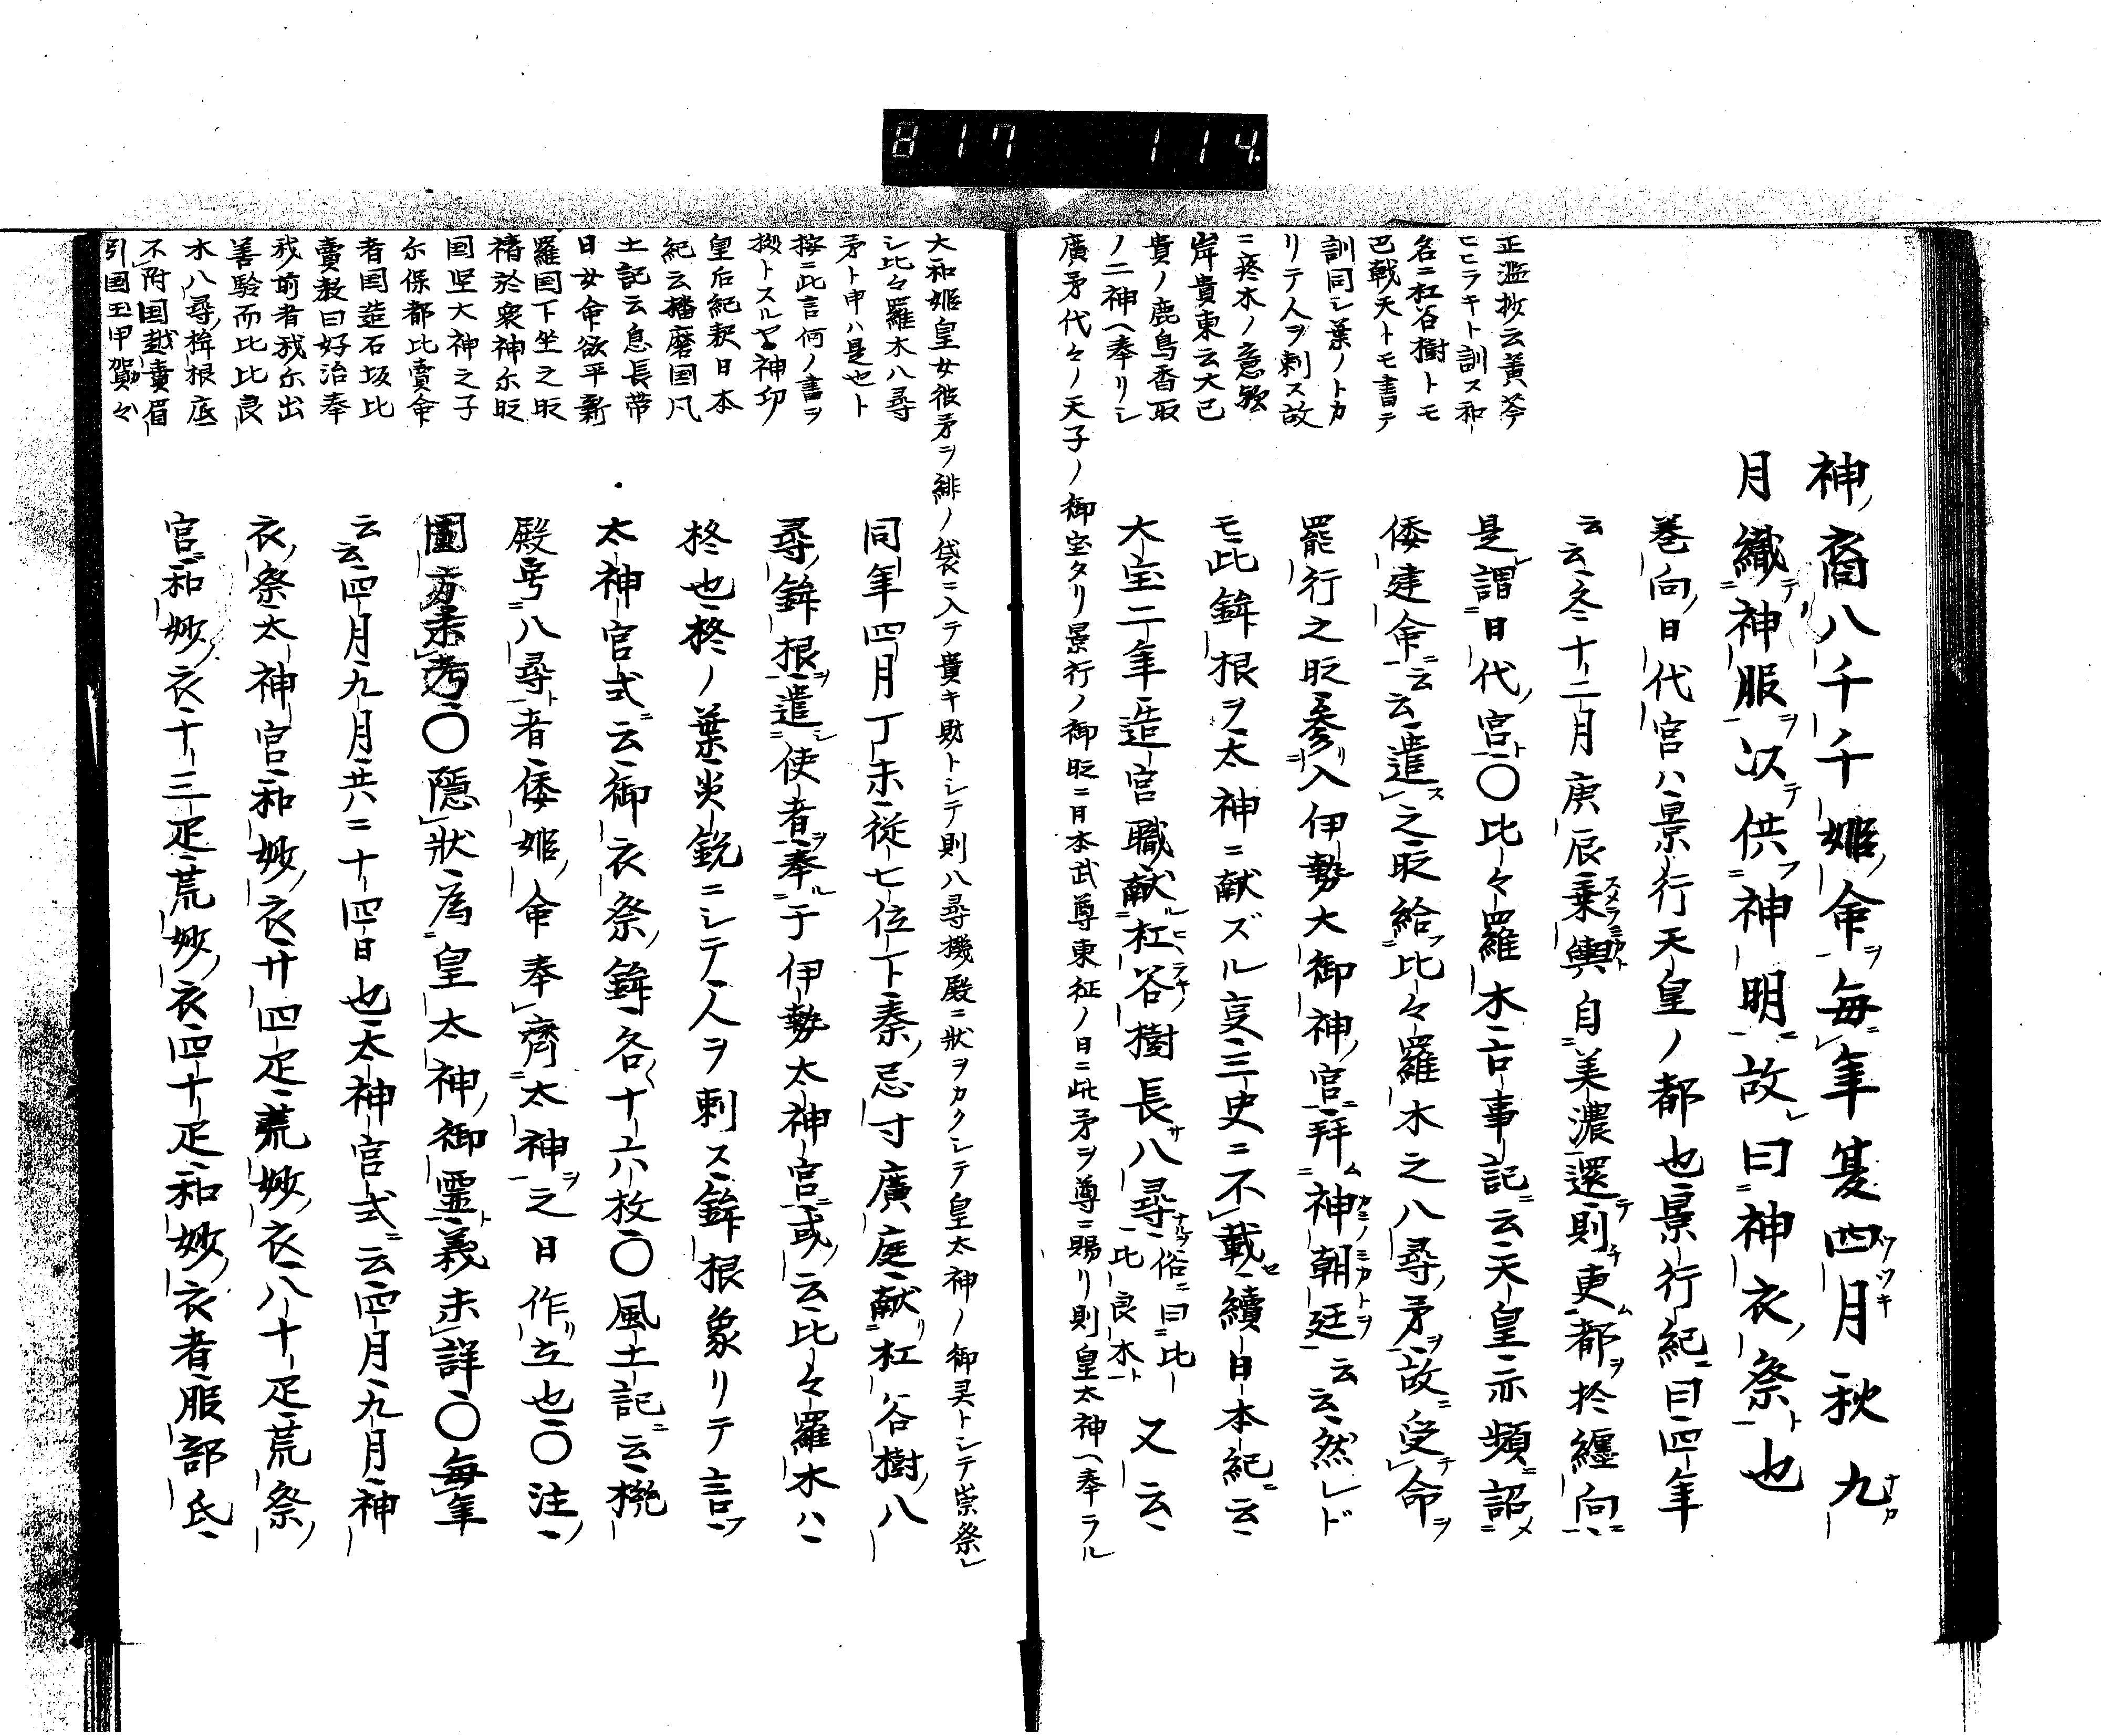 817 114.
正濫抄云黄芩
ヒヒラキト訓ス和
名ニ杠谷樹トモ
巴戟天トモ書テ
訓同シ葉ノトカ
リテ人ヲ刺ス故
ニ疼木ノ意歟
岸貴東云大己
貴ノ鹿島香取
ノ二神ヘ奉リシ
廣矛代々ノ天子ノ御宝タリ景行ノ御時ニ日本武尊東征ノ日ニ此矛ヲ尊ニ賜リ則皇太神ヘ奉ラル
神裔八千千姫命ヲ毎年夏四月秋九
月織テ神服ヲ以テ供フ神明ニ故曰神衣祭ト也
巻向日代宮ハ景行天皇ノ都也景行紀曰四年
云云冬十二月庚辰乗輿自美濃還テ則チ更ム都ヲ於纏向ニ
是謂日代宮ト〇比々羅木古事記ニ云天皇亦頻ニ詔メ
倭建命ニ云云遣ス之時給フ比々羅木之八尋矛ヲ故ニ受テ命ヲ
罷行之時参リ入伊勢大御神宮ニ拝ム神朝廷ヲ云云然レド
モ此鉾根ヲ太神ニ献ズル亥三史ニ不載セ續日本紀ニ云
大宝二年造宮職献ル杠谷樹長サ八尋俗ニ曰比比良木ト又云
大和姫皇女彼矛ヲ緋ノ袋ニ入テ貴キ財トシテ則八尋機殿ニ狀ヲカクシテ皇太神ノ御㚑トシテ崇祭
シ比々羅木八尋
矛ト申ハ是也ト
按ニ此言何ノ書ヲ
拠トスルヤ神功
皇后紀釈日本
紀云播磨国凡
土記云息長帯
日女命欲平新
羅国下坐之時
禱於衆神尓時
国堅大神之子
尓保都比賣命
者国造石坂比
賣教曰好治奉
我前者我尓出
善驗而比比良
木八尋桙根底
不附国越賣眉
引国玉甲賀々
同年四月丁未従七位下秦忌寸廣庭献リ杠谷樹八
尋鉾根ヲ遣シ使者ヲ奉ル于伊勢太神宮ニ或云比々羅木ハ
柊也柊ノ葉炎鋭ニシテ人ヲ刺ス鉾根象リテ言フ
太神宮式ニ云御衣祭鉾各十六枚〇風土記ニ云機
殿号ニ八尋ト者倭姫命奉齊太神ヲ之日作リ立也〇注
圍方未考〇隠狀為皇太神御霊ト義未詳〇毎年
云云四月九月共ニ十四日也太神宮式ニ云四月九月神
衣祭太神宮和妙衣廿四疋荒妙衣八十疋荒祭
宮ニ和妙衣十三疋荒妙衣四十疋和妙衣者服部氏